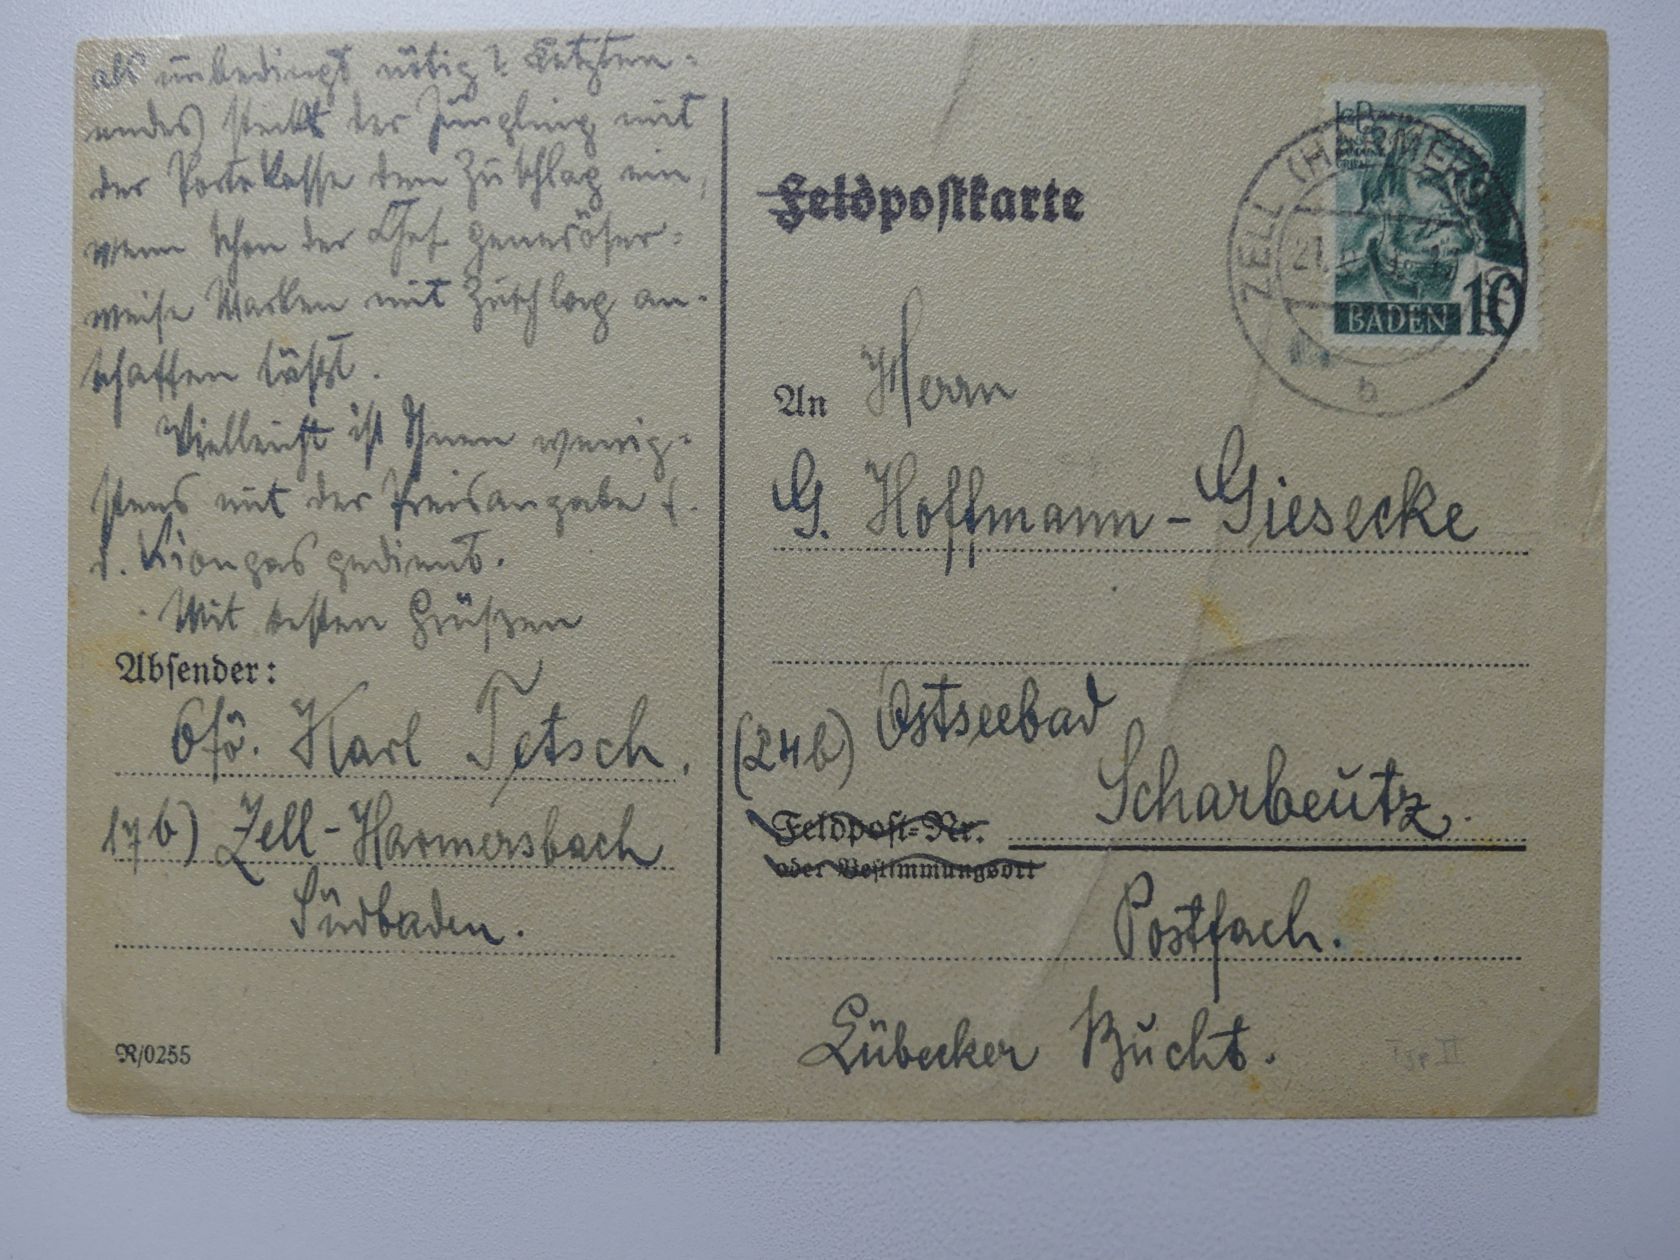 als unbedingt nötig? Letzten=
endes steckt der Jüngling mit
der Portokasse den Zuschlag ein,
wenn schon der Chef generöser=
weise Marken mit Zuschlag an=
schaffen läßt.
Vielleicht ist Ihnen wenig=
stens mit der Preisangabe f.
d. gedient.
Mit besten Grüßen
Absender:
Ofö. Karl Tetsch,
17b) Zell-Harmersbach
Südbaden.
R/0255
Feldpostkarte
ZELL (HARMERSB
21.
b
BADEN 10
An Herrn
G. Hoffmann-Giesecke
(24b) Ostseebad
Scharbeutz.
Feldpost=Nr.
oder Bestimmungsort
Postfach.
Lübecker Bucht.
Typ II